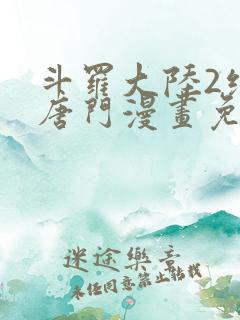 斗羅大陸2
唐門漫畫免
迷途樂章
未經同意禁止轉載